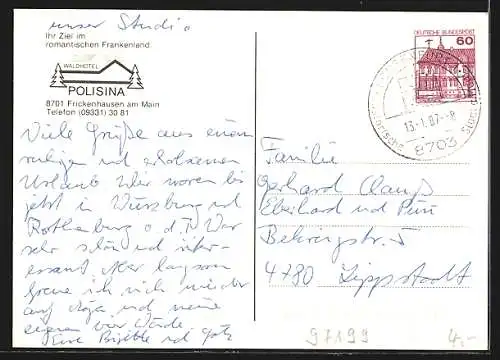 unser Studi.
Ihr Ziel im
romantischen Frankenland
WALDHOTEL
POLISINA
8701 Frickenhausen am Main
Telefon (09331) 30 81
Viele Grüße aus einem
ruhigen und erholsamen
Urlaub. Wir waren bis
jetzt in Würzburg und
Rothenburg o. d. T. War
sehr schön und inter-
essant. Aber langsam
freue ich mich wieder
auf und meine
eigenen vier Wände
Eure und Götz
DEUTSCHE BUNDESPOST
60
13.-1.87.-8
8703
Familie
Gerhard
Eberhard und
Behringstr. 5
4780 Lippstadt
97199
4,-